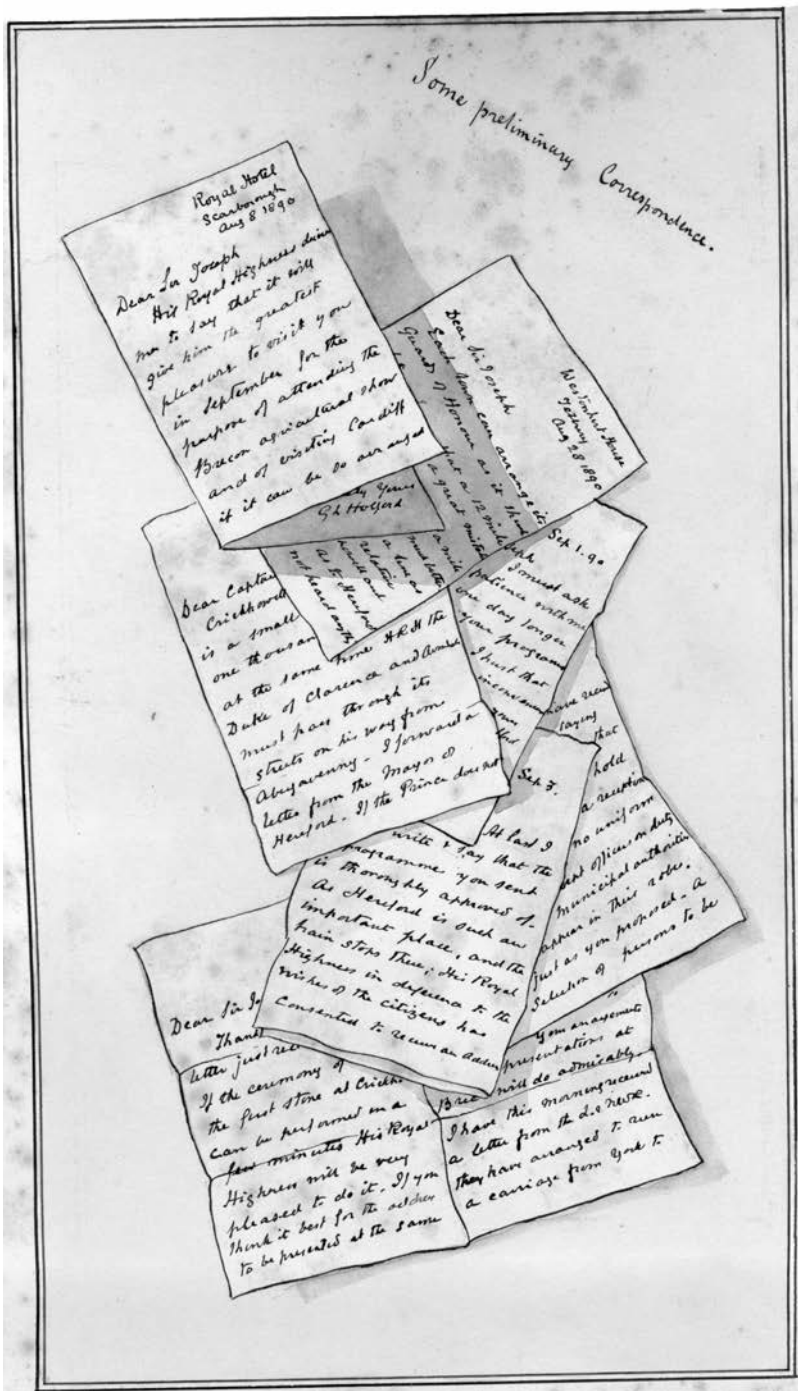 Some preliminary Correspondence.
Royal Hotel
Scarborough
Aug 8 1890
Dear Sir Joseph
His Royal Highness
me to say that it will
give him the greatest
pleasure to visit you
in September for the
purpose of attending the
Brecon agricultural show
and of visiting Cardiff
if it can be so arranged
Yours
G L Holford
Westonbirt House
Tetbury
Aug 28 1890
Dear Sir Joseph
Each town can arrange its
Guard of Honour as it
that a 12 mile
a great
a mile
must
a
relation
and
as to Hereford
not heard
Dear Captain
Crickhowell
is a small
one thousand
at the same time HRH the
Duke of Clarence and
must pass through its
streets on his way from
Abergavenny - I forward a
letter from the Mayor of
Hereford - If the Prince does not
Sep 1. 90
I must ask
patience with me
one day longer
your programme
I trust that
Sep 3.
At last I
write & say that the
programme you sent
is thoroughly approved of -
As Hereford is such an
important place, and the
train stops there, His Royal
Highness in deference to the
wishes of the citizens has
consented to receive an address
have
saying
that
hold
a reception
no uniform
officers on duty
municipal authorities
appear in their robes.
just as you proposed - A
Selection of persons to be
Dear Sir
letter just
If the ceremony of
the first stone at
can be performed in a
few minutes His Royal
Highness will be very
pleased to do it. If you
think it best for the address
to be presented at the same
your arrangements
presentations at
will do admirably.
I have this morning received
a letter from the
they have arranged to run
a carriage from York to